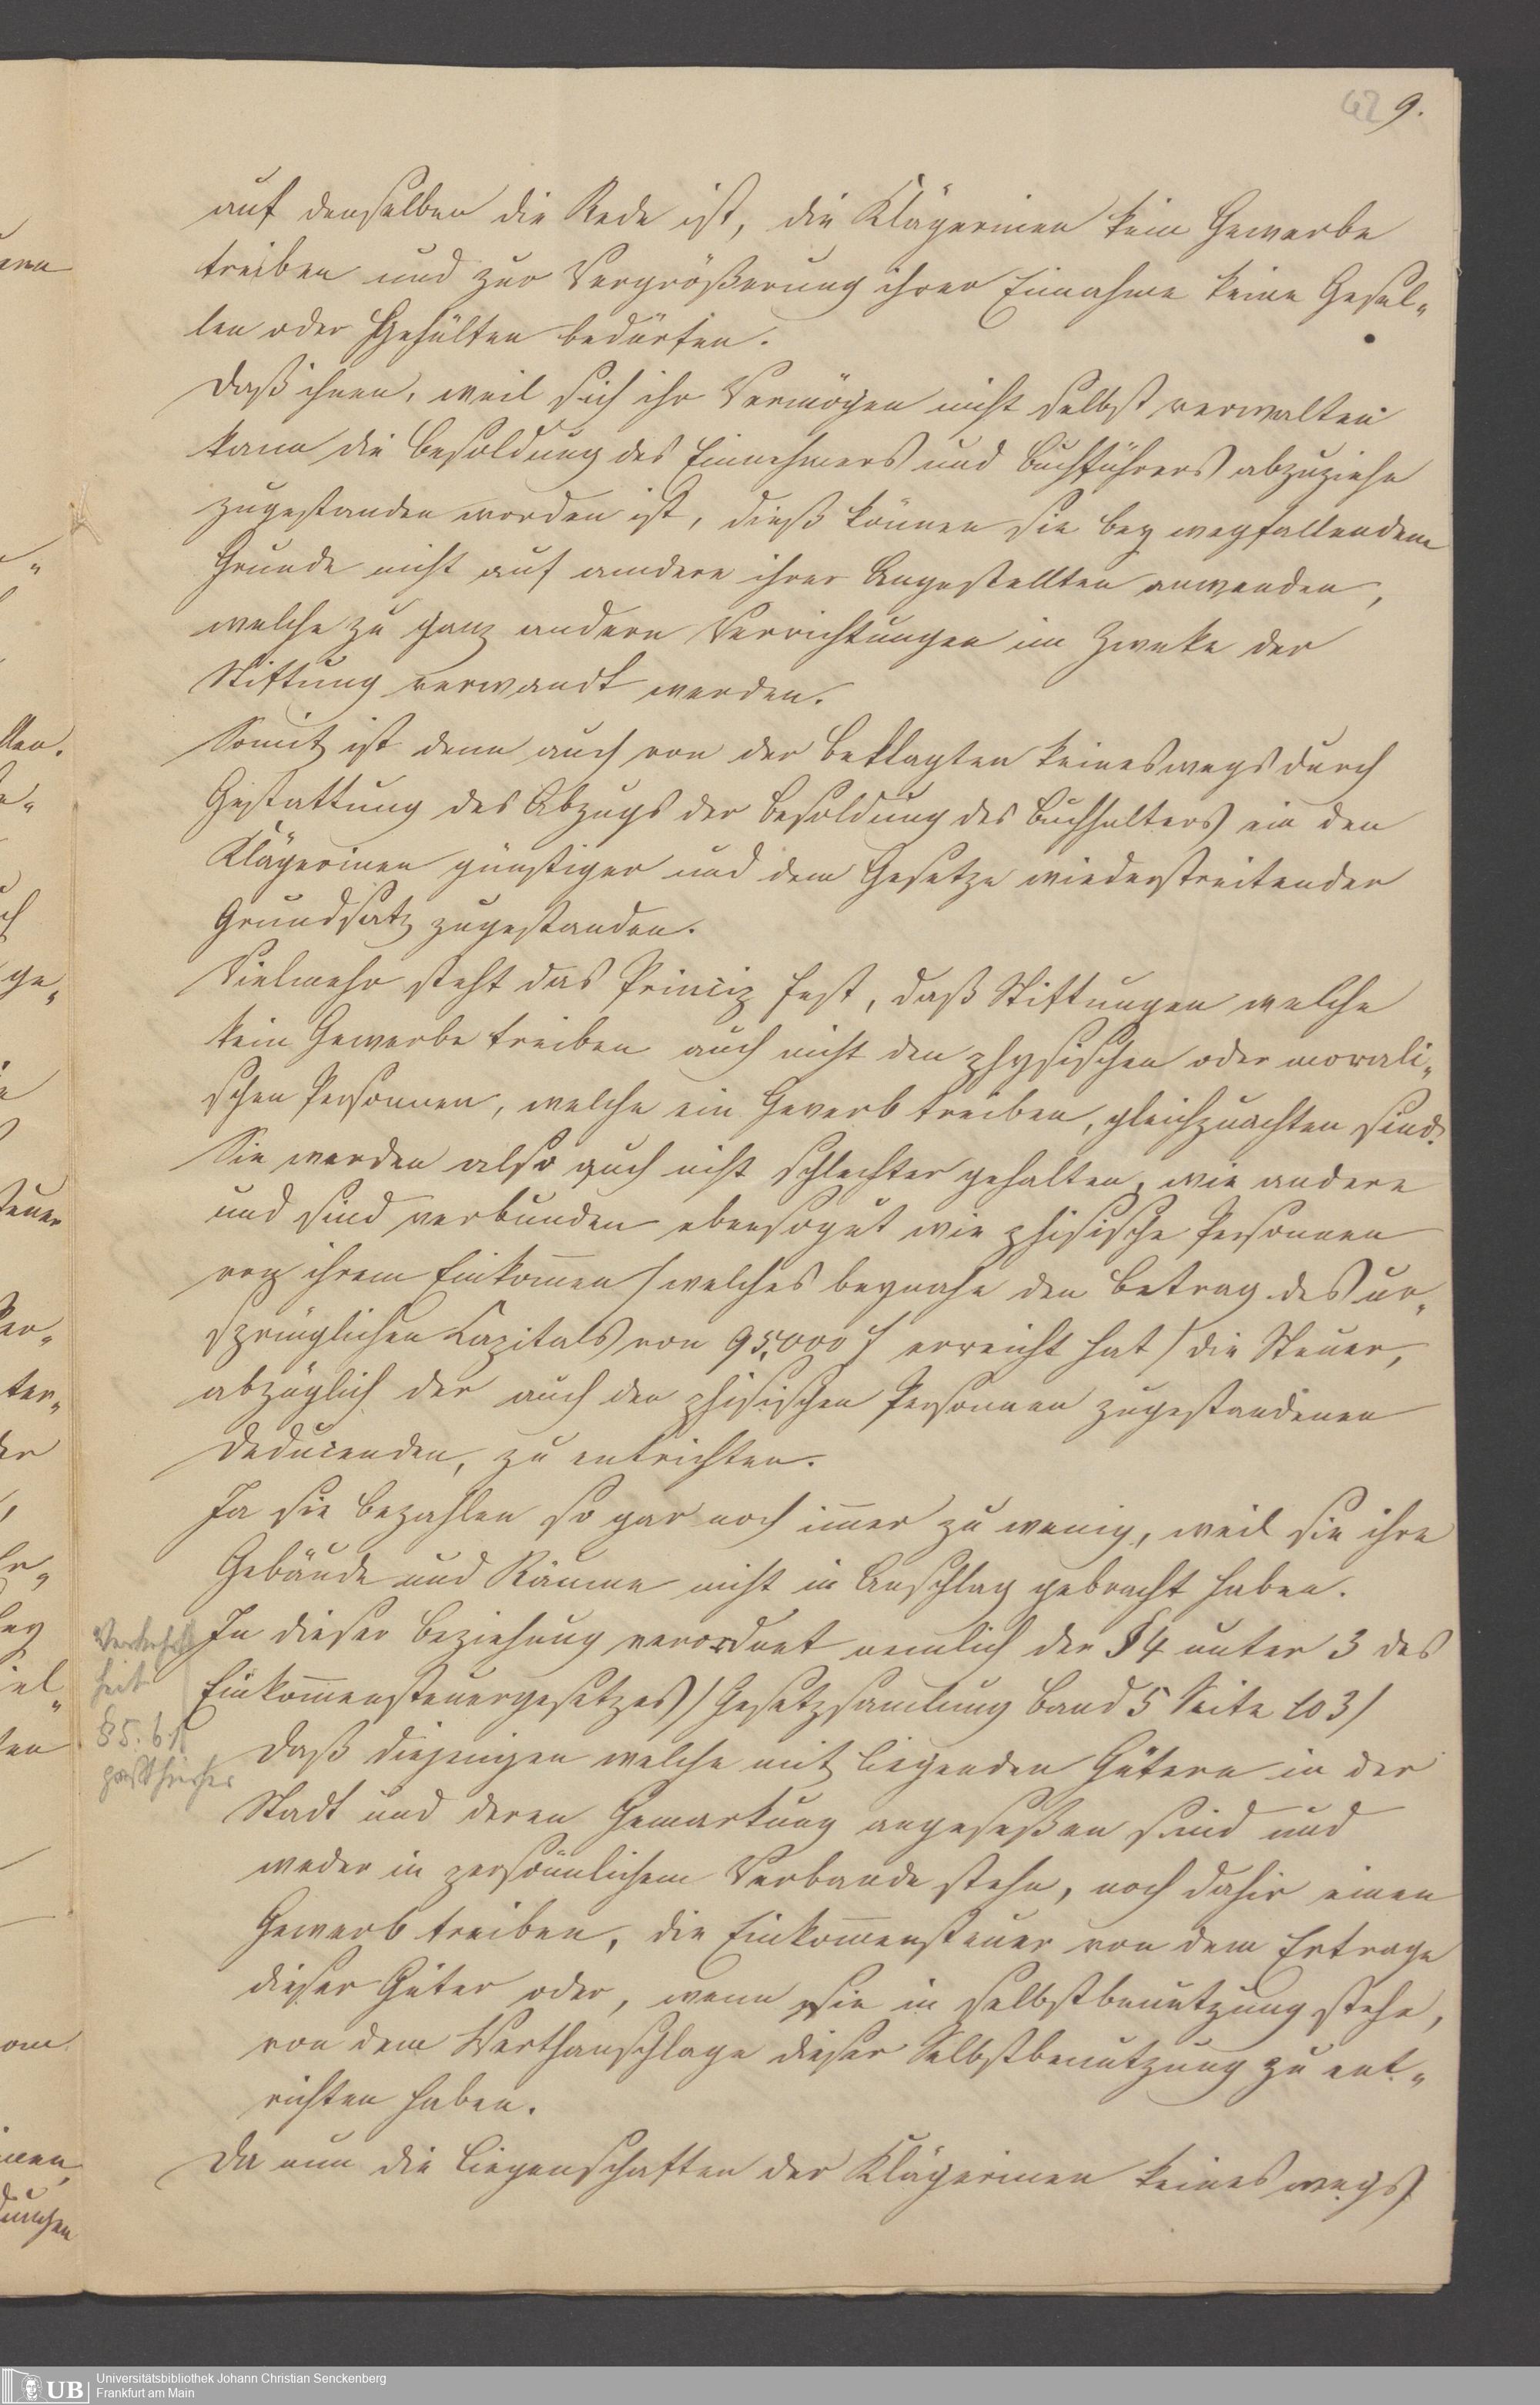 62 9.
auf denselben die Rede ist, die Klägerinen kein Gewerbe
treiben und zur Vergrößerung ihrer Einnahme keine Gesel„
len oder Gehülfen bedürfen.
Daß ihnen, weil sich ihr Vermögen nicht selbst verwalten
kann die Besoldung des Einnehmers und Buchführers abzuziehn
zugestanden worden ist, dieß können sie bey wegfallendem
Grunde nicht auf andere ihrer Angestellten anwenden,
welche zu ganz andern Verrichtungen im Zweke der
Stiftung verwandt werden.
Somit ist denn auch von der Beklagten keineswegs durch
Gestattung des Abzugs der Besoldung des Buchhalters ein den
Klägerinen günstiger und dem Gesetze wiederstreitender
Grundsatz zugestanden.
Vielmehr steht das Princip fest, daß Stiftungen welche
kein Gewerbe treiben auch nicht den physischen oder morali„
schen Personnen, welche ein Gewerb treiben, gleichzuachten sind.
Sie werden also auch nicht schlechter gehalten, wie andere
und sind verbunden ebensogut wie phisische Personnen
von ihrem Einkom̅en /welches beynahe den Betrag des ur„
sprünglichen Capitals von 95,000 f erreicht hat/ die Steuer,
abzüglich der auch den phisischen Personnen zugestandenen
Deducenden, zu entrichten.
Ja sie bezahlen so gar noch im̅er zu wenig, weil sie ihre
Gebäude und Räume nicht in Anschlag gebracht haben.
In dieser Beziehung verordnet nemlich der §4 unter 3 des
Einkom̅ensteuergesetzes /Gesetzsam̅lung Band 5 Seite 103/
daß diejenigen welche mit liegenden Gütern in der
Stadt und deren Gemarkung angeseßen sind und
weder in persönnlichem Verbande stehn, noch dahir einen
Gewerb treiben, die Einkom̅ensteuer von dem Ertrage
dieser Güter oder, wenn sie in Selbstbenutzung stehn,
von dem Werthanschlage dieser Selbstbenutzung zu ent„
richten haben.
Da nun die Liegenschaften der Klägerinen keineswegs
§ 5. 6.
Universitätsbibliothek Johann Christian Senckenberg
Frankfurt am Main
UB